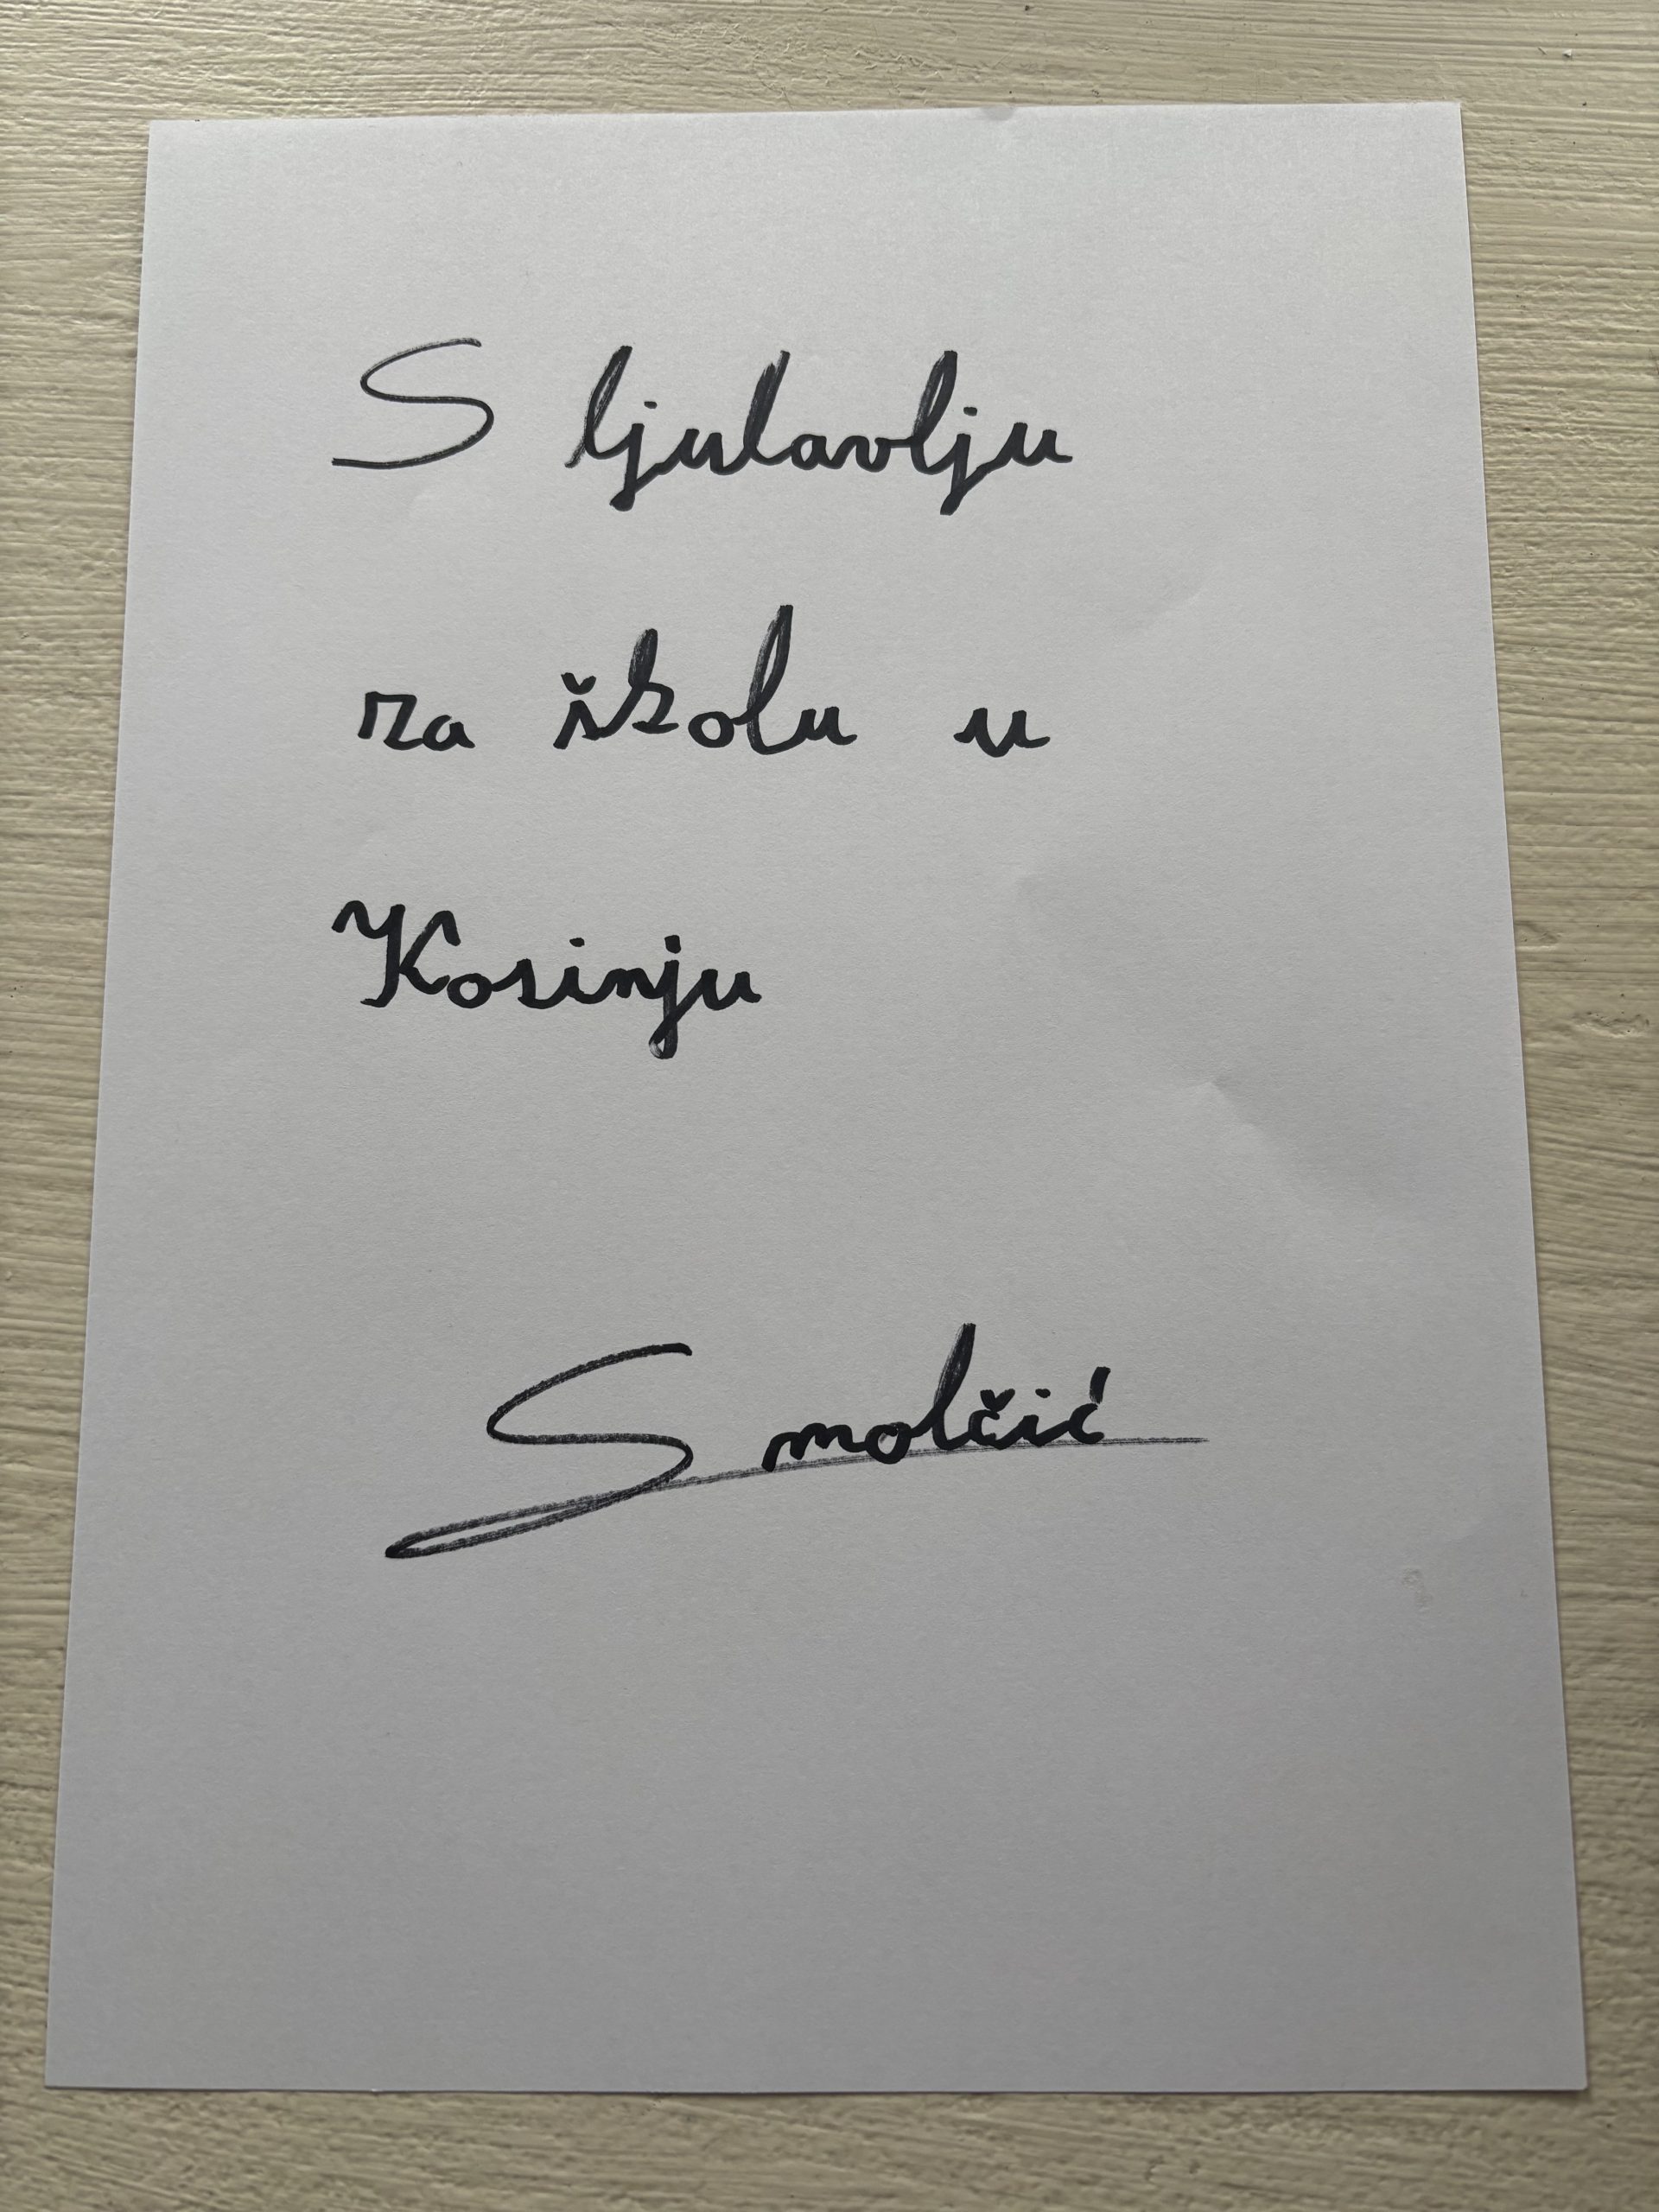 S ljubavlju
za školu u
Kosinju
Smolčić